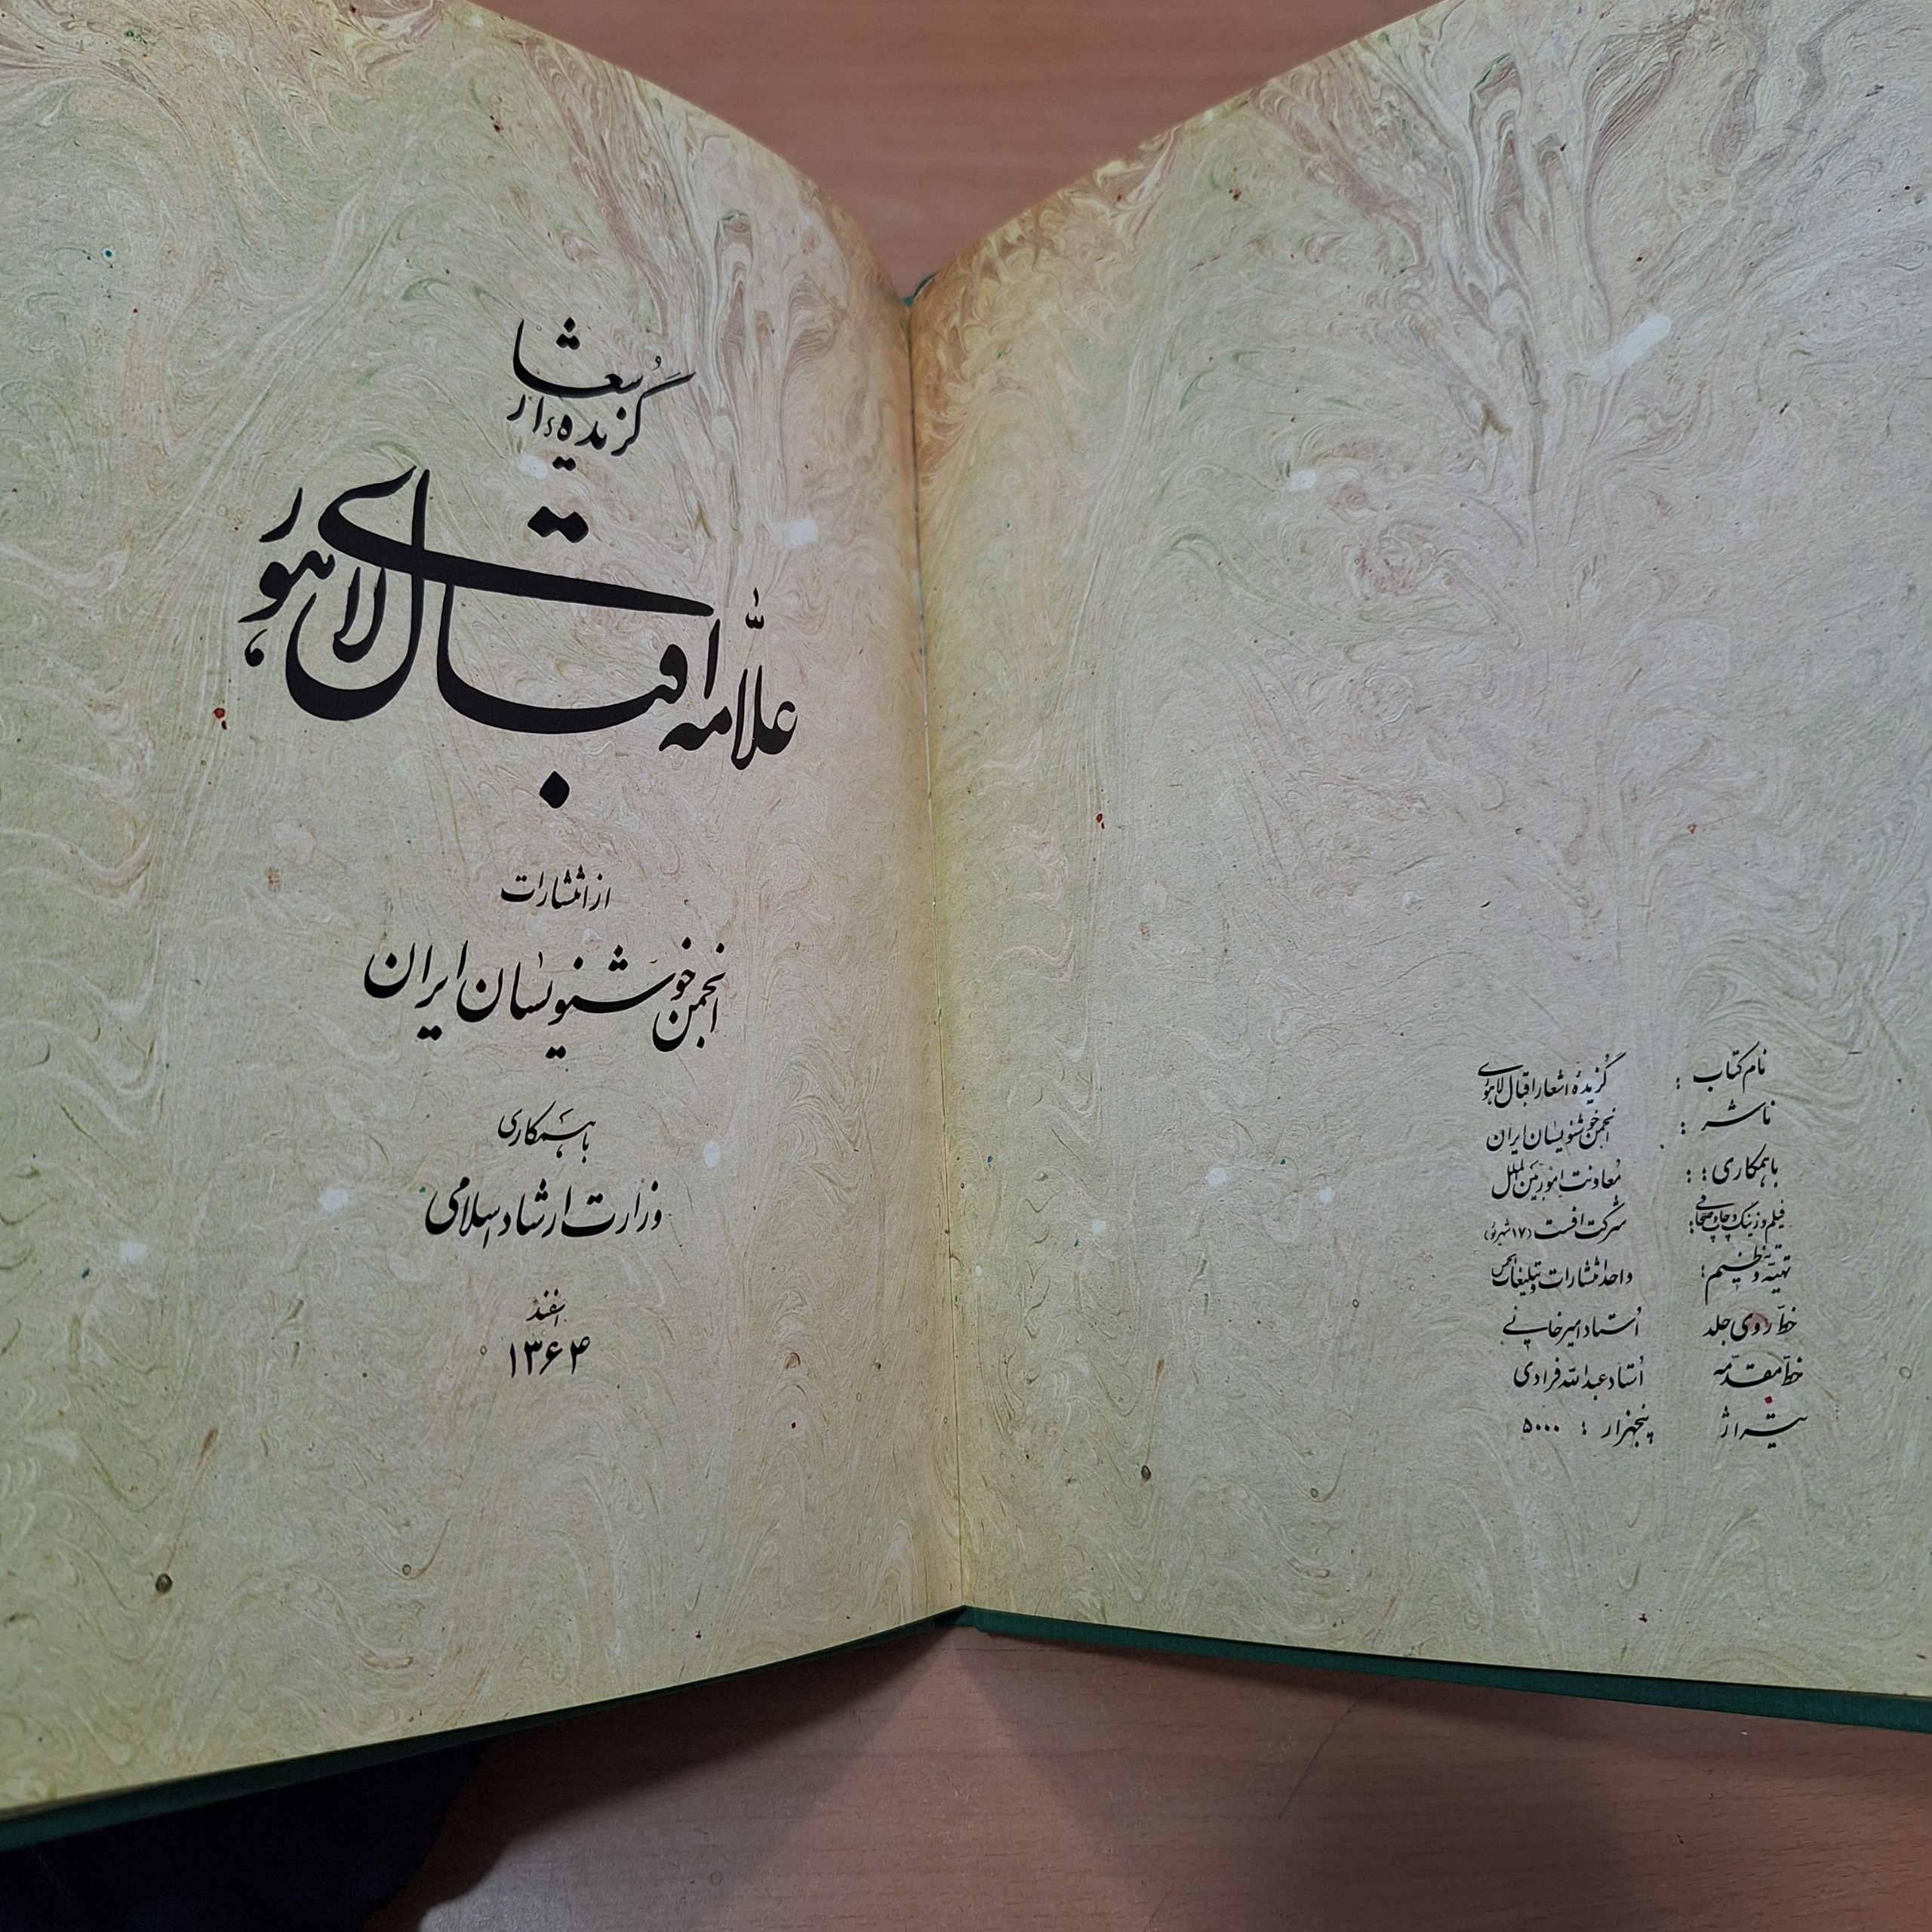 نام کتاب : گُزیدهٔ اشعار اقبال لاهوری
ناشر : انجمن خوشنویسان ایران
با همکاری : : مُعاونت امور بین‌الملل
فیلم و زینک و چاپ و صحافی : شرکت افست (۱۷ شهریور)
تهیّه و تنظیم : واحد انتشارات و تبلیغات انجمن
خطّ روی جلد اُستاد امیرخانی
خطّ مقدّمه اُستاد عبدالله فرادی
تیتراژ پنجهزار : ۵۰۰۰
گُزیدهء اشعار
علّامه اقبال لاهوری
از انتشارات
انجمن خوشنویسان ایران
با همکاری
وزارت ارشاد اسلامی
اسفند
۱۳۶۴